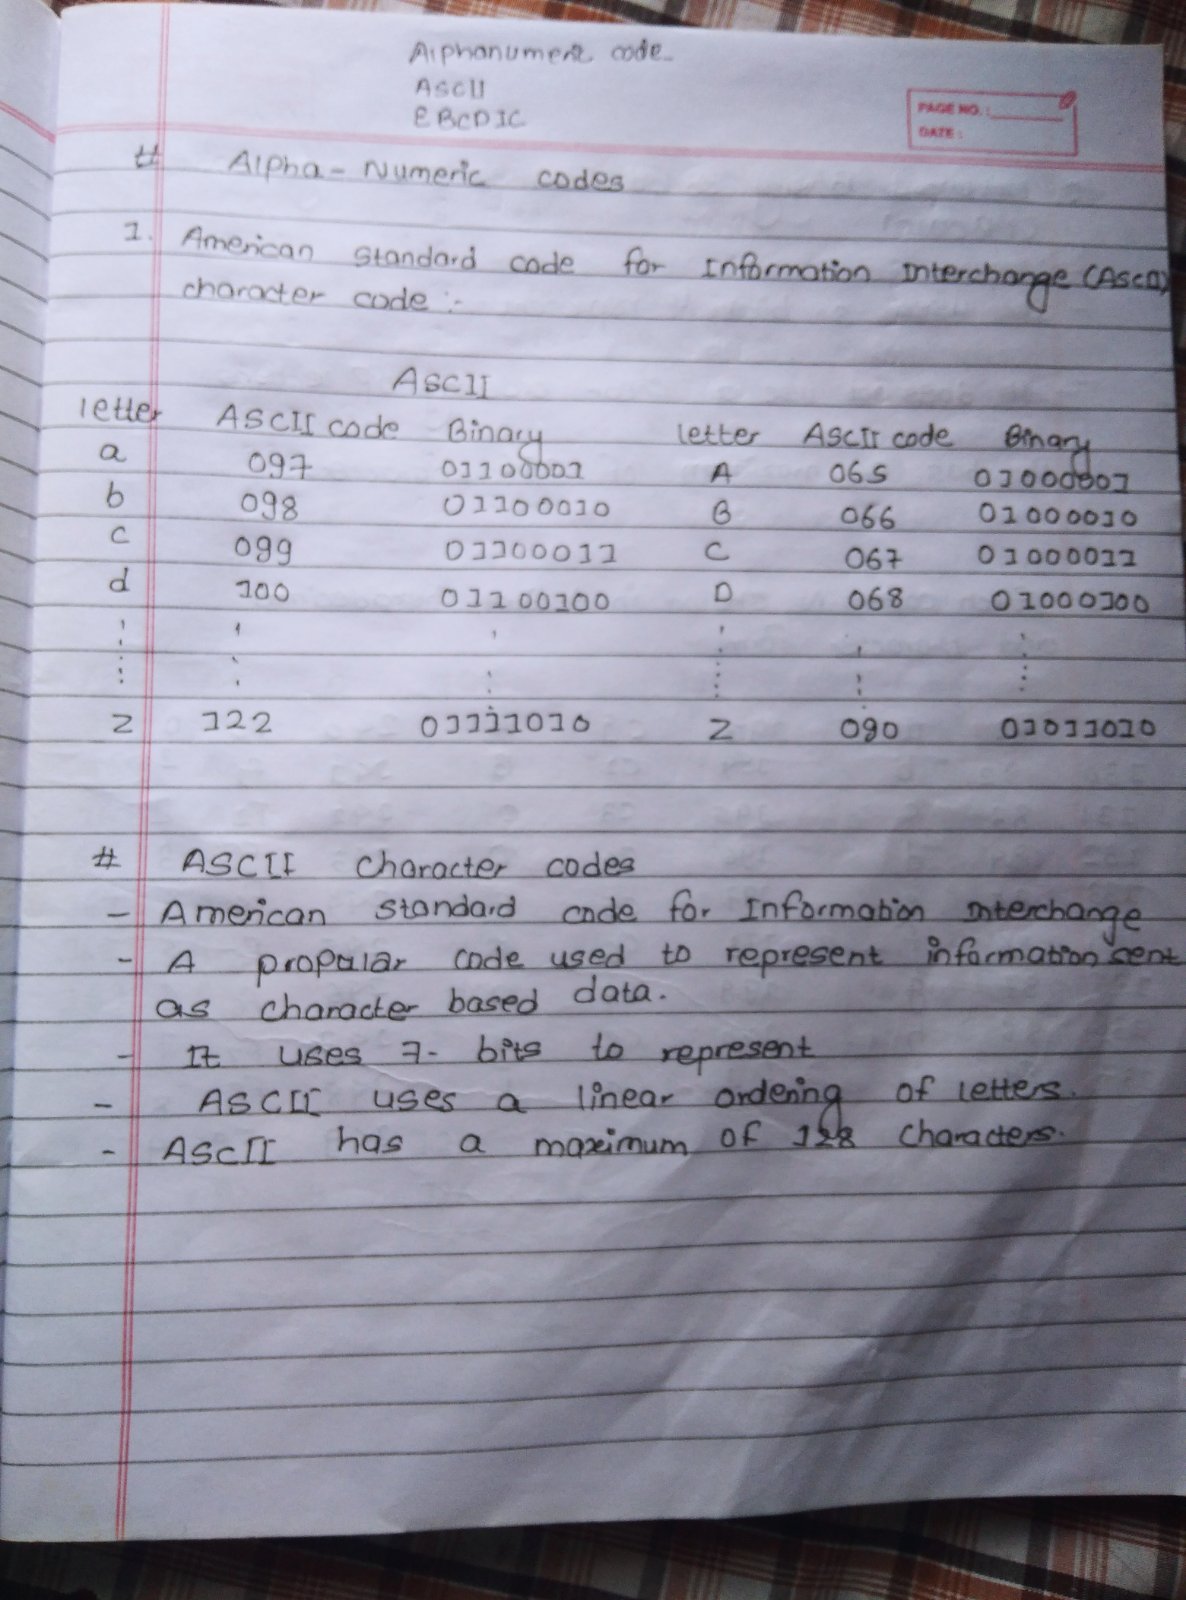 Alphanumeric code
ASCII
EBCDIC
PAGE NO. :
DATE :
# Alpha-Numeric codes
1. American standard code for Information Interchange (ASCII)
character code :-
ASCII
letter ASCII code Binary letter ASCII code Binary
a 097 01100001 A 065 01000001
b 098 01100010 B 066 01000010
c 099 01100011 C 067 01000011
d 100 01100100 D 068 01000100
z 122 01111010 Z 090 01011010
# ASCII Character codes
- American standard code for Information Interchange
- A propular code used to represent information sent
as character based data.
- It uses 7-bits to represent
- ASCII uses a linear ordering of letters.
- ASCII has a maximum of 128 characters.